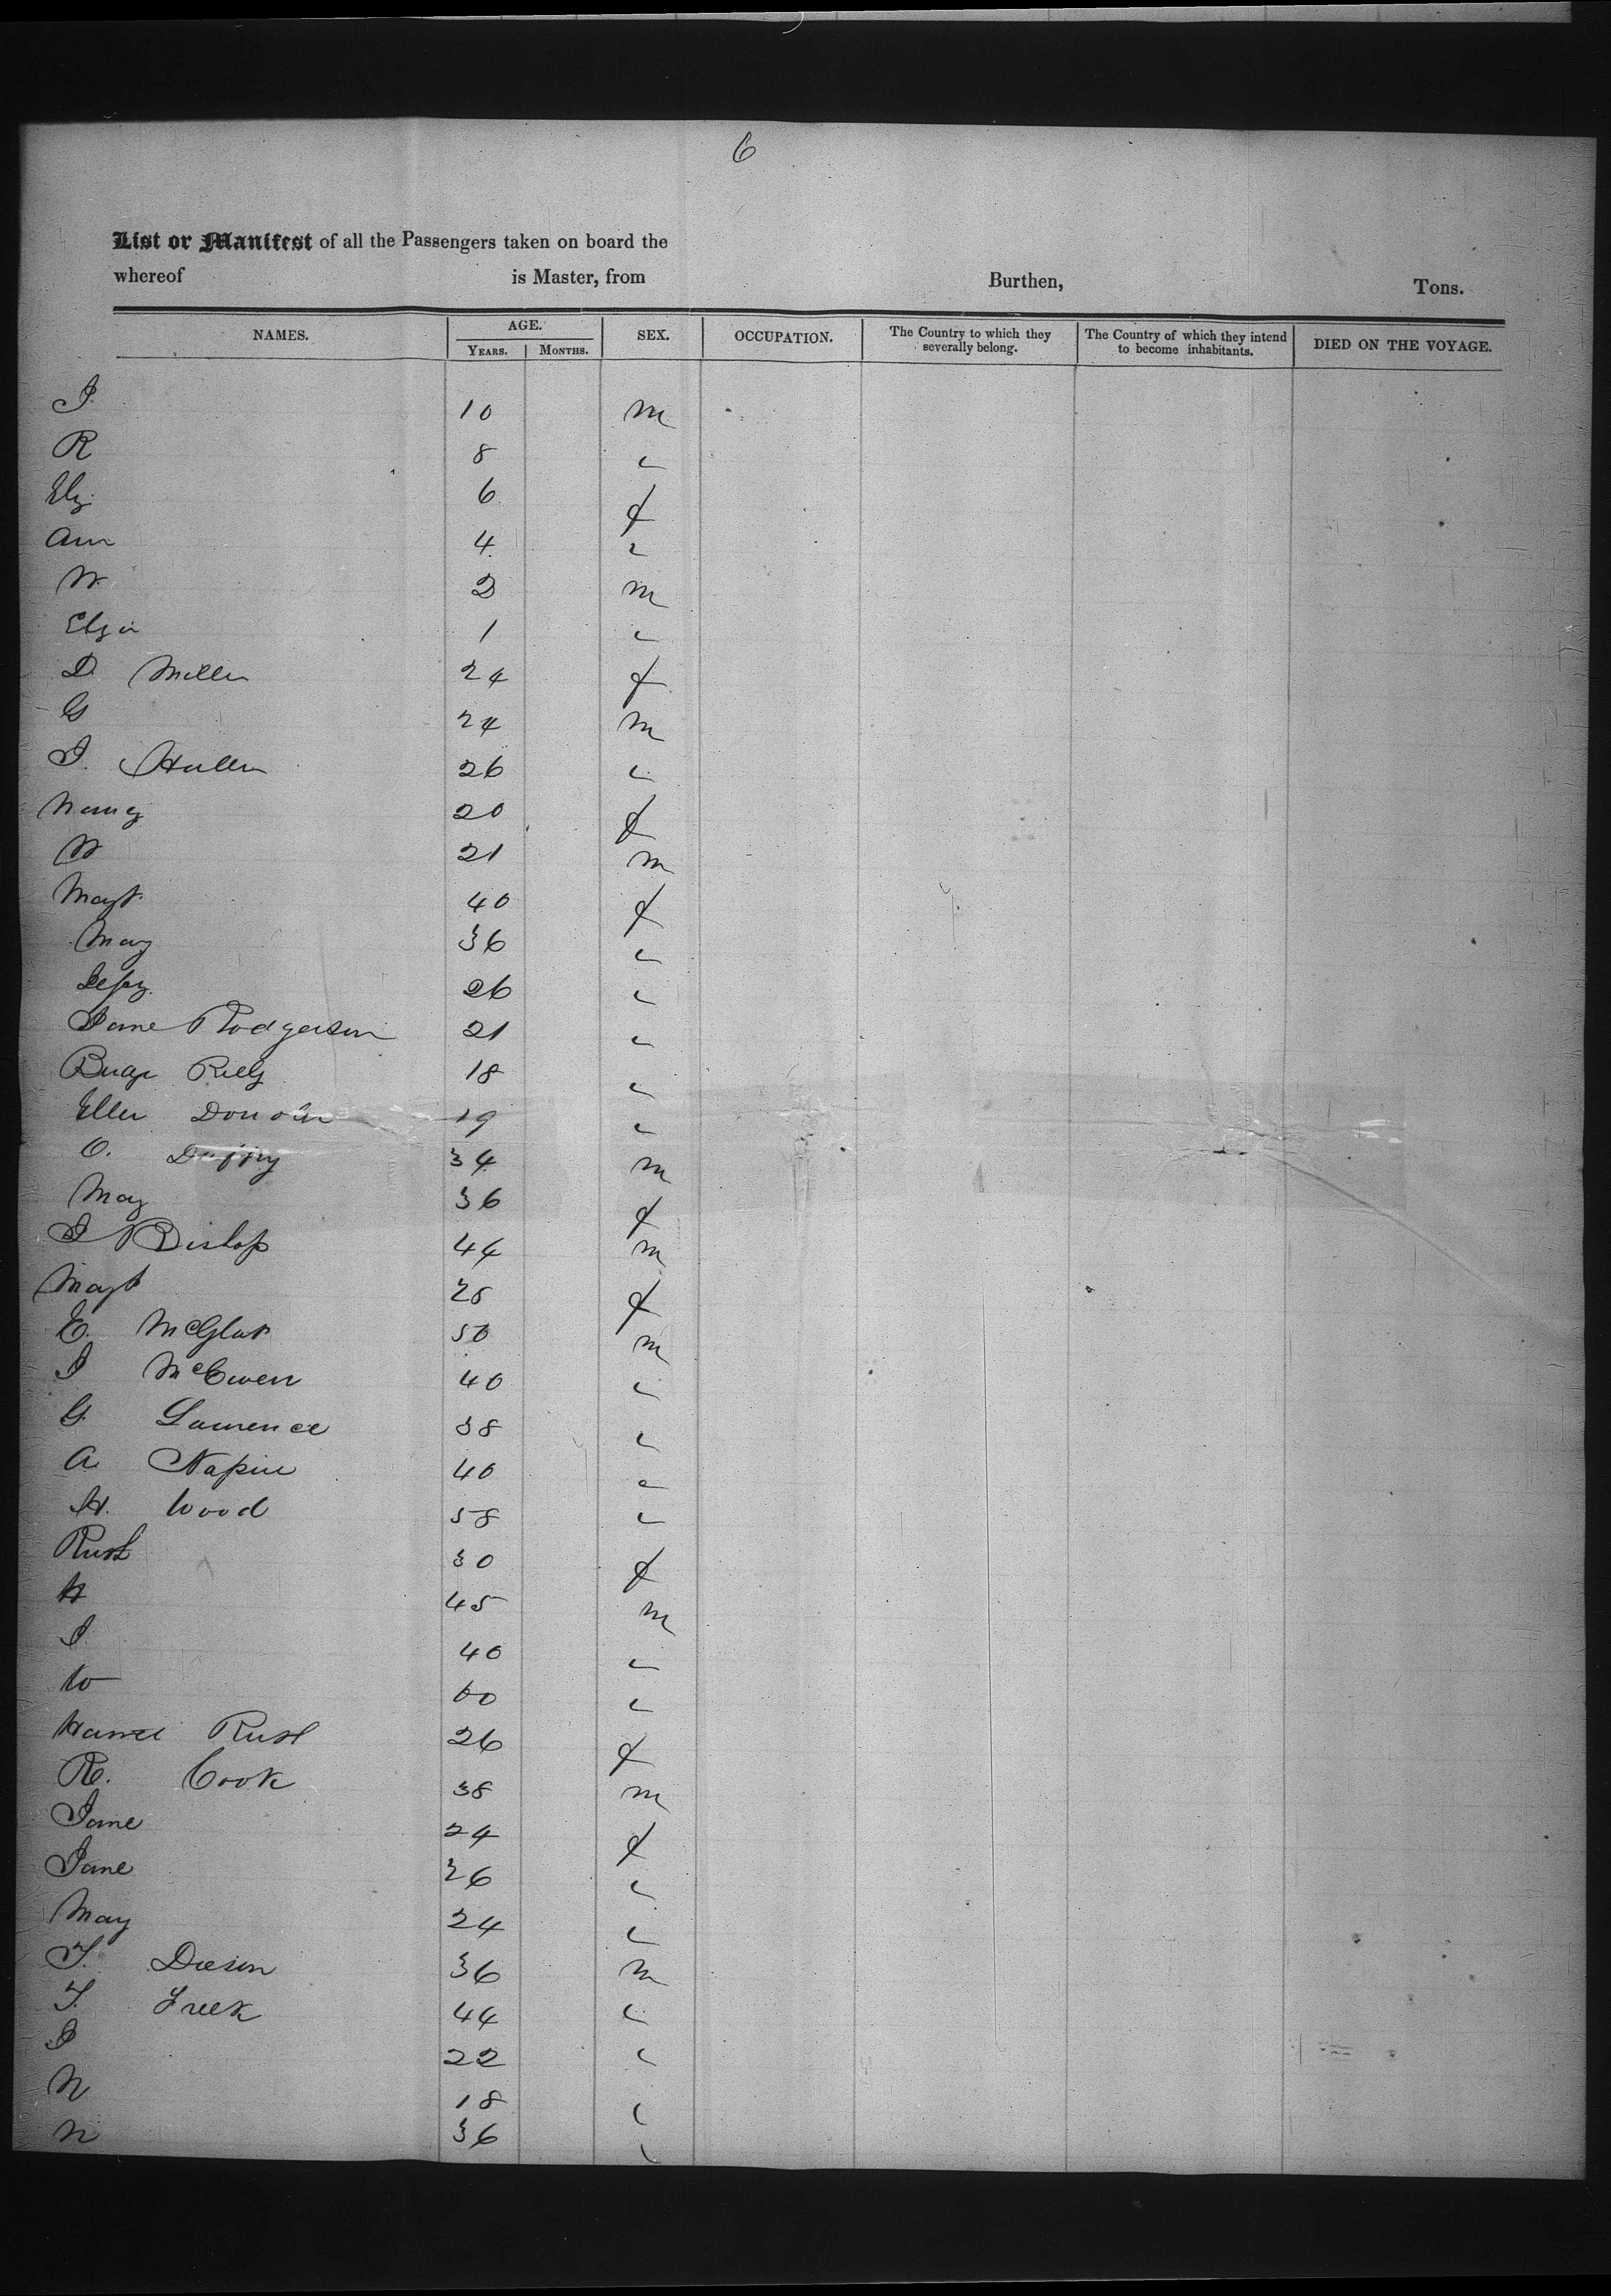 6
List or Manifest of all the Passengers taken on board the
whereof is Master, from Burthen, Tons.
NAMES. AGE. YEARS. MONTHS. SEX. OCCUPATION. The Country to which they severally belong. The Country of which they intend to become inhabitants. DIED ON THE VOYAGE.
J. 10 m
R 8 "
Elz. 6 f
Ann 4 "
W. 2 m
Elza 1 "
D. Miller 24 f
G 24 m
J. Hullen 26 "
Nancy 20 f
W 21 m
Magt. 40 f
May 36 "
26 "
Jane Rodgerson 21 "
Rielly 18 "
Ellen Donovan 19 "
O. Duffny 34 m
May 36 f
J Bishop 44 m
Magt 28 f
E. 50 m
J McEwen 40 "
G. Lawrence 38 "
A. Napier 40 "
H. Wood 58 "
30 f
H 45 m
J. 40 "
W 60 "
Rush 26 f
R. Cook 38 m
Jane 24 f
Jane 26 "
May 24 "
T. 36 m
T. Freek 44 "
J 22 "
N 18 "
N 36 "